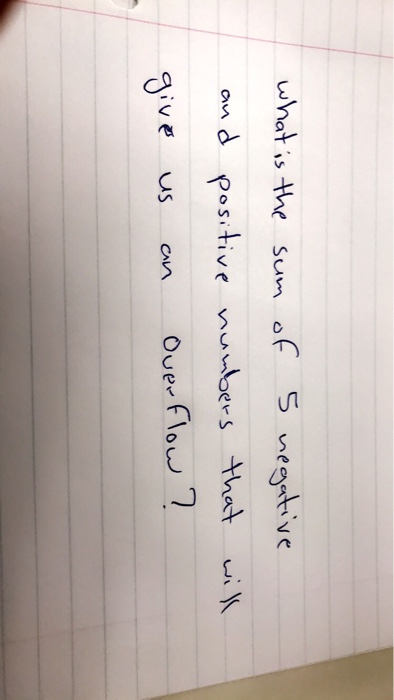 what is the sum of 5 negative
and positive numbers that will
give us an overflow?